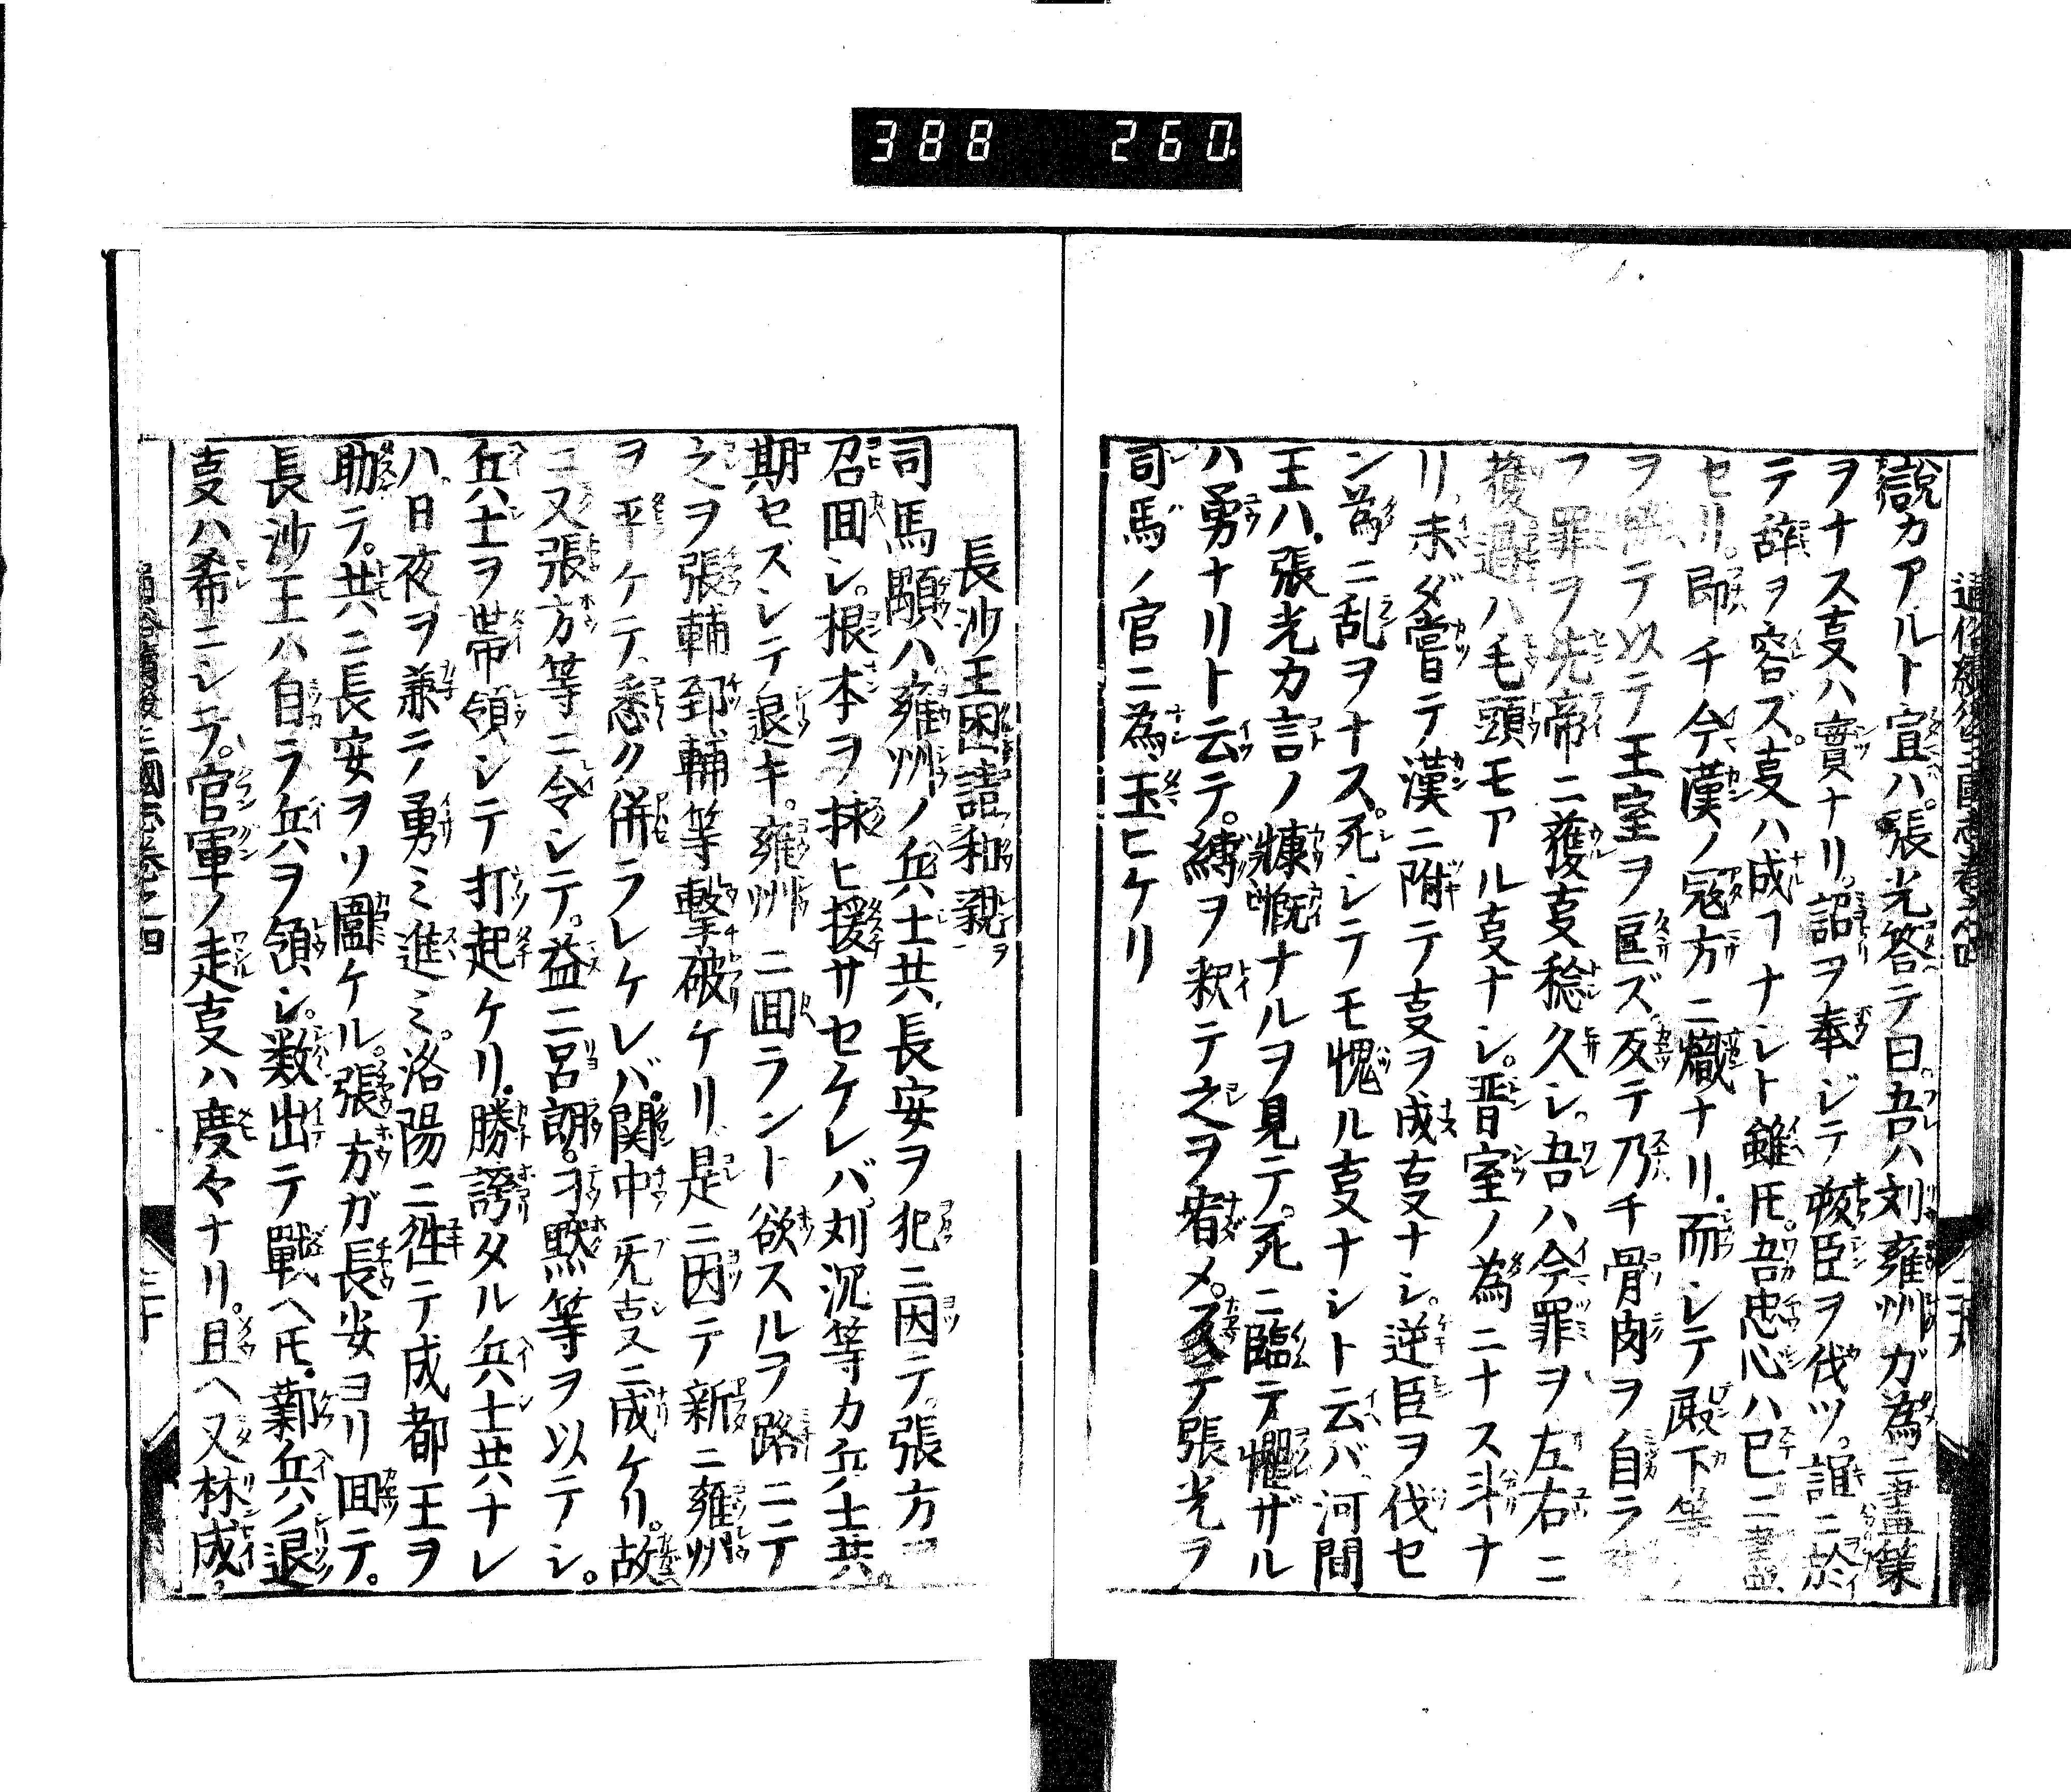 388 260
説カアルト宣ハ。張光答テ曰吾ハ刘雍州ガ為ニ畫策
ヲナス亊ハ實ナリ。詔ヲ奉ジテ叛臣ヲ伐ツ。誼ニ於イ
テ辞ヲ容ズ。亊ハ成ヿナシト雖𪜈。吾忠心ハ已ニ盡
セリ。即チ今漢ノ冦方ニ熾ナリ。而シテ殿下等
ヲ テ以テ王室ヲ匡ズ。反テ乃チ骨肉ヲ自ラ
フ罪ヲ先帝ニ獲亊稔久シ。吾ハ今罪ヲ左右ニ
獲 ハ毛頭モアル亊ナシ。晋室ノ為ニナス斗ナ
リ未ダ嘗テ漢ニ附テ亊ヲ成亊ナシ。逆臣ヲ伐セ
ン為ニ乱ヲナス。死シテモ愧ル亊ナシト云バ。河間
王ハ。張光カ言ノ慷慨ナルヲ見テ。死ニ臨テ懼ザル
ハ勇ナリト云テ。縛ヲ釈テ之ヲ宥メ。 テ張光ヲ
司馬ノ官ニ為玉ヒケリ
長沙王困請和親ヲ
司馬顒ハ雍州ノ兵士共長安ヲ犯ニ因テ。張方ヲ
召囬シ。根本ヲ抹ヒ援サセケレバ。刘沉等カ兵士共。
期セズシテ退キ。雍州ニ囬ラント欲スルヲ路ニテ
之ヲ張輔郅輔等撃破ケリ是ニ因テ新ニ雍州
ヲ平ケテ悉ク併ラレケレバ。関中旡亊ニ成ケリ。故
ニ又張方等ニ令シテ。益ニ呂朗。刁黙等ヲ以テシ。
兵士ヲ帯領シテ打起ケリ。勝誇タル兵士共ナレ
ハ。日夜ヲ兼テ勇ミ進ミ。洛陽ニ徃テ成都王ヲ
助テ。共ニ長安ヲソ圖ケル。張方ガ長安ヨリ囬テ。
長沙王ハ自ラ兵ヲ領シ。数出テ戰ヘ𪜈。鄴兵ノ退
亊ハ希ニシテ。官軍ノ走亊ハ度々ナリ。且ヘ又林成。
三國志巻之四
三十